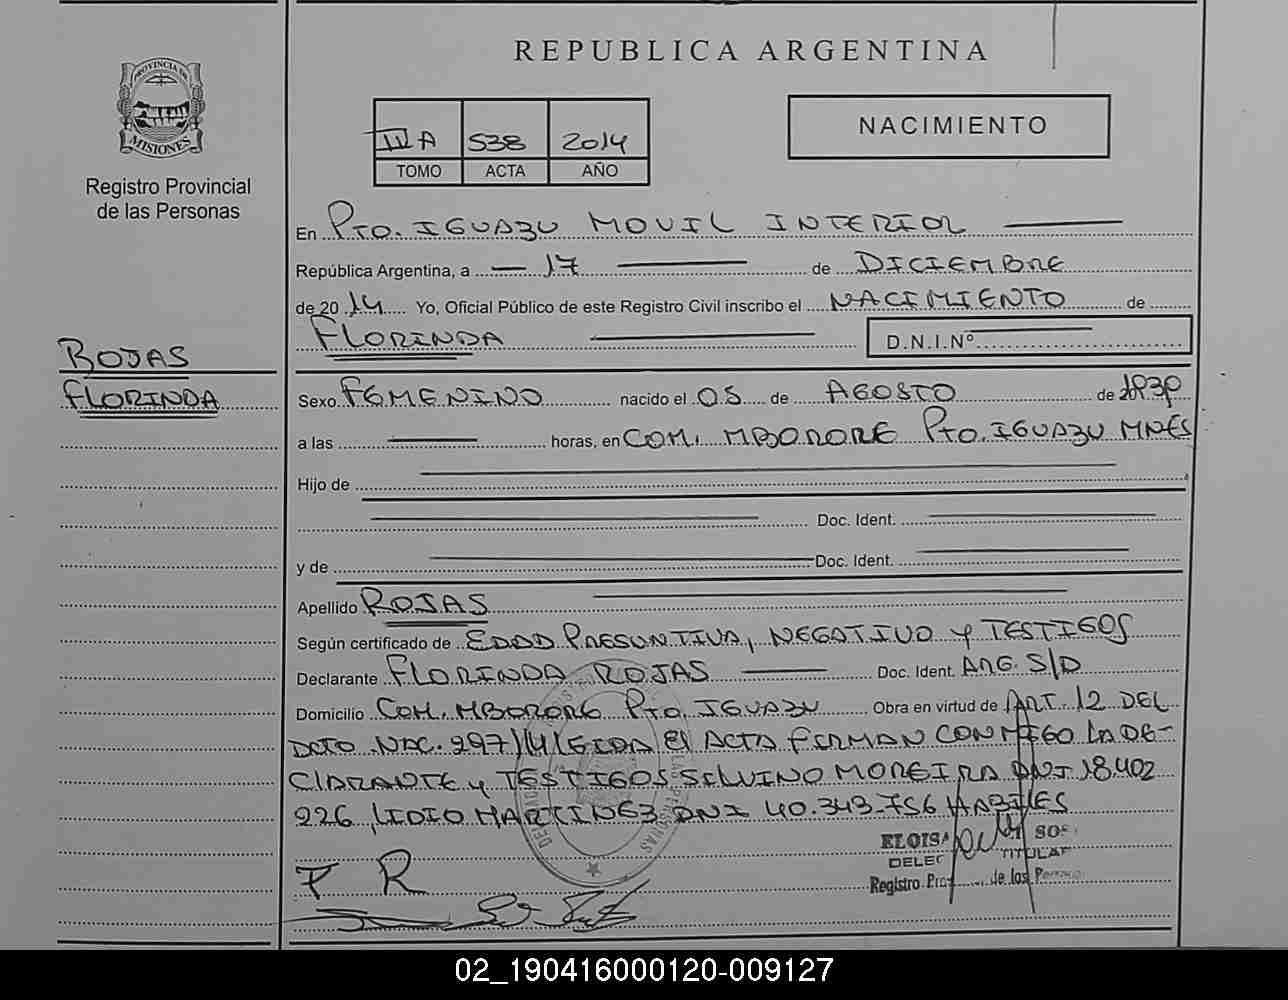 REPUBLICA ARGENTINA
PROVINCIA DE
MISIONES
Registro Provincial
de las Personas
A 538 2014
TOMO ACTA AÑO
NACIMIENTO
En PTO. IGUAZU MOVIL INTERIOR
República Argentina, a 17 de DICIEMBRE
de 2014 Yo, Oficial Público de este Registro Civil inscribo el NACIMIENTO de
FLORINDA D.N.I.Nº
ROJAS
FLORINDA
Sexo FEMENINO nacido el 05 de AGOSTO de
a las horas, en COM. MBORORE PTO. IGUAZU MNES
Hijo de
Doc. Ident.
y de Doc. Ident.
Apellido ROJAS
Según certificado de EDAD PRESUNTIVA, NEGATIVO y TESTIGOS
Declarante FLORINDA ROJAS Doc. Ident. ARG. S/D
Domicilio COM. MBORORE PTO. IGUAZU Obra en virtud de ART. 12 DEL
DCTO NAC. 297/14 LEIDA El ACTA FIRMAN CONMIGO LA DE-
CLARANTE y TESTIGOS SILVINO MOREIRA DNI 18.402
226, LIDIO MARTINEZ DNI 40.343.756 HABILES
ELOISA SOS
DELEG TITULAR
Registro Pro de las Personas
F R
02_190416000120-009127